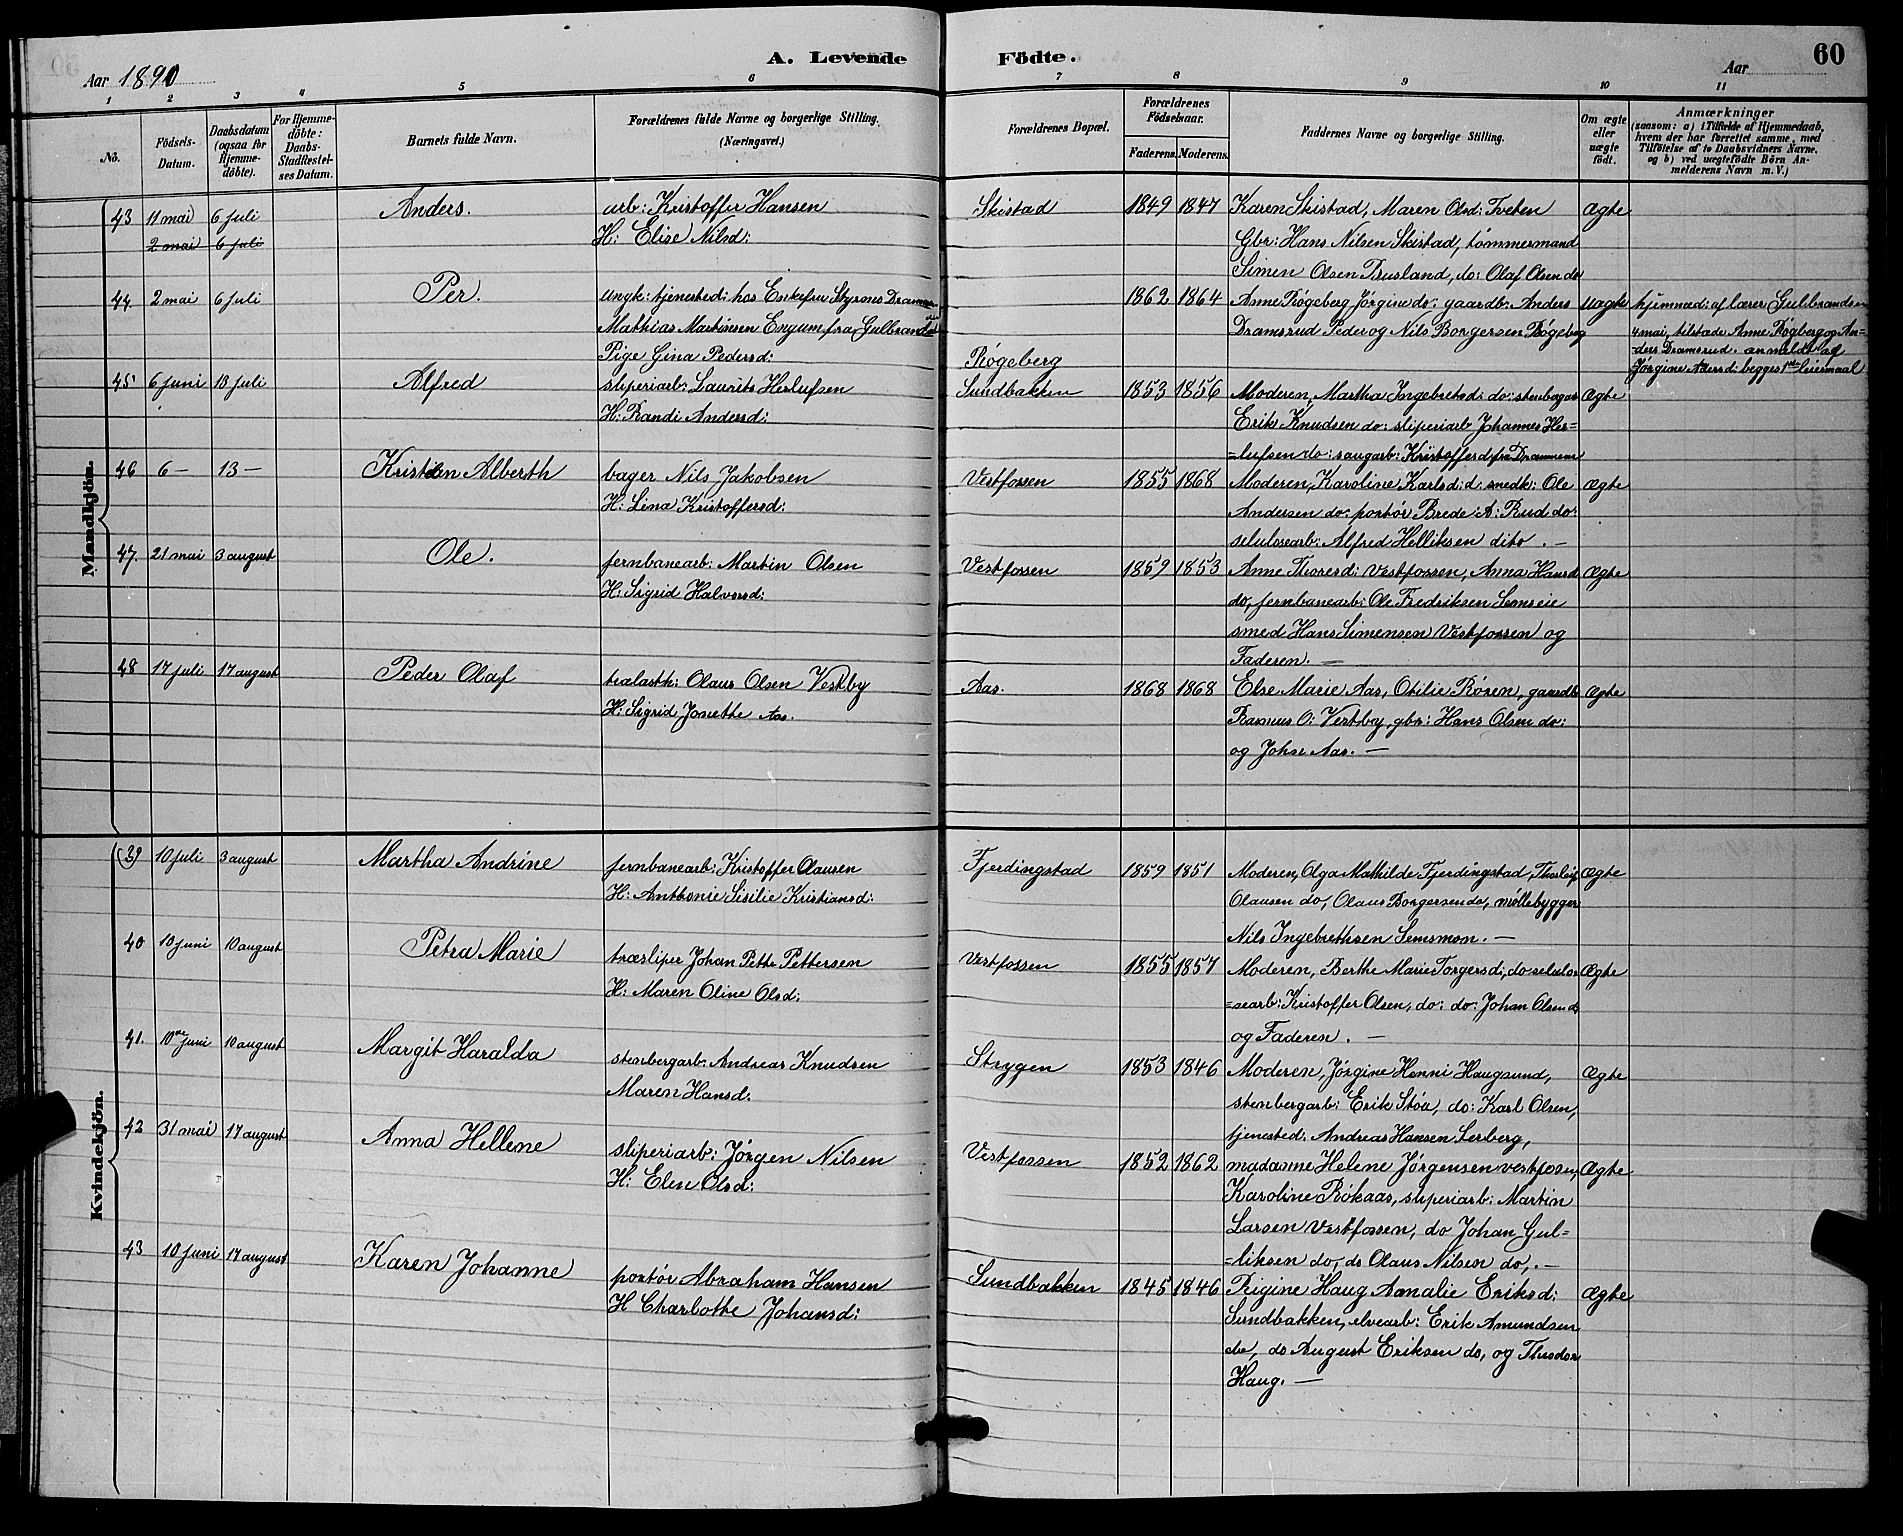 Aar 1890
A. Levende
Födte.
60
Aar
1 2 3 4 5 6 7 8 9 10 11
No.
Födsels-Datum.
Daabsdatum (ogsaa for Hjemme-döbte).
For Hjemme-döbte: Daabs-Stadfæstel-ses Datum.
Barnets fulde Navn.
Forældrenes fulde Navne og borgerlige Stilling. (Næringsvei.)
Forældrenes Bopæl.
Forældrenes Födselsaar.
Faderens. Moderens.
Faddernes Navne og borgerlige Stilling.
Om ægte eller uægte födt.
Anmærkninger
(saasom: a) i Tilfælde af Hjemmedaab, hvem der har forrettet samme, med Tilföielse af to Daabsvidners Navne, og b) ved uægtefödte Börn An-melderens Navn m. V.)
Mandkjön.
43 11 mai 6 juli Anders. arb: Kristoffer Hansen Skistad 1849 1847 Karen Skistad, Maren Olsd: Tveten Ægte
2 mai 6 juli H: Elise Nilsd: Gbr: Hans Nilsen Skistad, tømmermand
Simen Olsen Brusland, do: Olaf Olsen do
44 2 mai 6 juli Per. ungk: tjenested: hos Enkefru Styrsnes Drammen 1862 1864 Anne Røgeberg Jørgine do: gaardb: Anders uægte hjemmed: af lærer Gulbrandsen
Mathias Martinsen Engum fra Gulbrandsd Dramsrud Peder og Nils Borgersen Røgeberg 4 mai, tilstede Anne Røgberg og An=
Pige Gina Pedersd: Røgeberg =ders Dramsrud. anmeldt af
Jørgine Andersd: begges 1ste leiermaal
45 6 juni 13 juli Alfred sliperiarb: Laurits Herlufsen Sundbakken 1853 1856 Moderen, Martha Ingebretsd: do: stenbergarb Ægte
H: Randi Andersd: Erik Knudsen do: sliperiarb Johannes Her=
=lufsen do: saugarb: Kristoffer d fra Drammen
46 6 — 13 — Kristian Alberth bager Nils Jakobsen Vestfossen 1855 1868 Moderen, Karoline Karlsd: d: smedk: Ole Ægte
H: Lina Kristoffersd: Andersen do: portør Brede A: Rud do:
seluloserarb: Alfred Helliksen dito. —
47. 21 mai 3 august Ole. jernbanearb: Martin Olsen Vestfossen 1859 1853 Anne Thoresd: Vestfossen, Anna Hansd Ægte
H: Sigrid Halvorsd: do, jernbanearb: Ole Fredriksen Semseie
smed Hans Simensen Vestfossen og
Faderen. —
48 17 juli 17 august Peder Olaf Olaus Olsen Vestby Aas. 1868 1868 Else Marie Aas, Otilie Røren, gaardb Ægte
H: Sigrid Jonette Aas. Rasmus O: Vestby, gbr: Hans Olsen do:
og Johse Aas. —
Kvindekjön.
39 10 juli 3 august Martha Andrine jernbanearb: Kristoffer Olausen Fjerdingstad 1859 1851 Moderen, Olga Mathilde Fjerdingstad, Thorleif Ægte
H: Anthonie Sisilie Kristiansd: Olausen do, Olaus Borgersen do, møllebygger
Nils Ingebrethsen Semsmon. —
40 10 juni 10 august Petra Marie træsliper Johan Petter Pettersen Vestfossen 1855 1857 Moderen, Berthe Marie Torgersd:, do selulo= Ægte
H: Maren Oline Olsd: =searb: Kristoffer Olsen, do: do: Johan Olsen do
og Faderen. —
41. 10de juni 10 august Margit Haralda stenbergarb: Andreas Knudsen Strygen 1853 1846 Moderen, Jørgine Henni Haugsund, Ægte
Maren Hansd. stenbergarb: Erik Støa, do: Karl Olsen,
tjenested: Andreas Hansen Lerberg,
42 31 mai 17 august Anna Hellene sliperiarb: Jørgen Nilsen Vestfossen 1852 1862 madamme Helene Jørgensen vestfossen, Ægte
H: Elen Olsd: Karoline Røkaas, sliperiarb: Martin
Larsen Vestfossen, do Johan Gul=
=liksen do, do Olaus Nilsen do,. —
43 10 juni 17 august Karen Johanne portør Abraham Hansen Sundbakken 1845 1846 Rigine Haug Amalie Eriksd: Ægte
H Charlotte Johansd: Sundbakken, elvearb: Erik Amundsen
do, do August Eriksen do, og Theodor
Haug. —